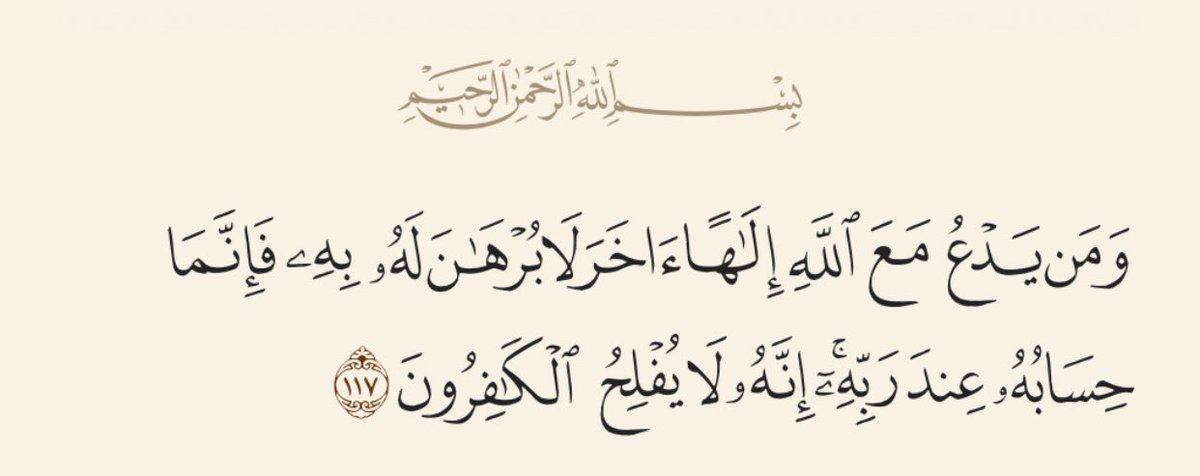 بِسْمِ ٱللَّهِ ٱلرَّحْمَٰنِ ٱلرَّحِيمِ
وَمَن يَدْعُ مَعَ ٱللَّهِ إِلَٰهًا ءَاخَرَ لَا بُرْهَٰنَ لَهُۥ بِهِۦ فَإِنَّمَا
حِسَابُهُۥ عِندَ رَبِّهِۦٓ ۚ إِنَّهُۥ لَا يُفْلِحُ ٱلْكَٰفِرُونَ ١١٧